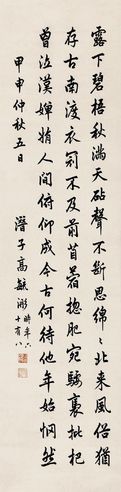 露下碧梧秋滿天砧聲不斷思綿〻北來風俗猶
存古南渡衣冠不及前苜蓿總肥宛騕褭枇杷
曾泣漢嬋娟人間俯仰成今古何待他年始惘然
甲申仲秋五日
潛子高毓浵時年六
十有八